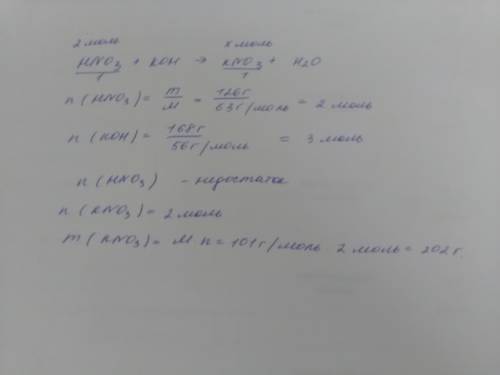 2 моль x моль
HNO₃ + KOH → KNO₃ + H₂O
1 1
n (HNO₃) = m/M = 126г/63г/моль = 2 моль
n (KOH) = 168г/56г/моль = 3 моль
n (HNO₃) - недостаток
n (KNO₃) = 2 моль
m (KNO₃) = M n = 101г/моль 2 моль = 202г.